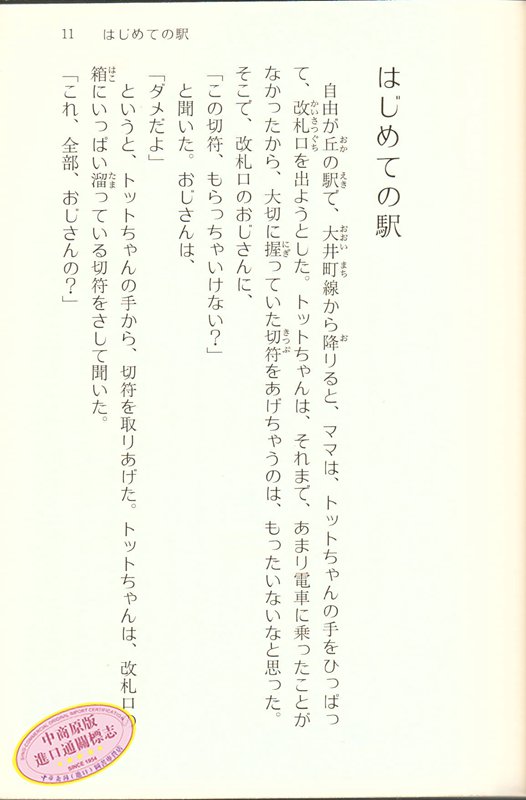 11 はじめての駅
はじめての駅
自由が丘の駅で、大井町線から降りると、ママは、トットちゃんの手をひっぱっ
て、改札口を出ようとした。トットちゃんは、それまで、あまり電車に乗ったことが
なかったから、大切に握っていた切符をあげちゃうのは、もったいないなと思った。
そこで、改札口のおじさんに、
「この切符、もらっちゃいけない？」
と聞いた。おじさんは、
「ダメだよ」
というと、トットちゃんの手から、切符を取りあげた。トットちゃんは、改札口の
箱にいっぱい溜っている切符をさして聞いた。
「これ、全部、おじさんの？」
中商原版
進口通關標志
SINCE 1954